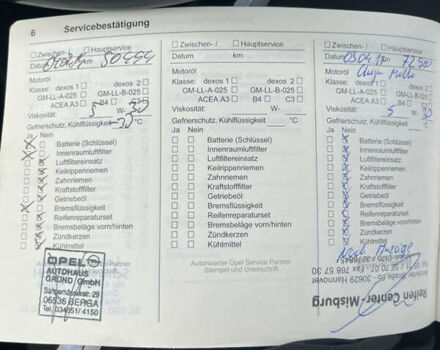 6 Servicebestätigung
Zwischen-/ Hauptservice
Datum km 50444
Motoröl
Klasse: dexos 1 dexos 2
GM-LL-A-025 GM-LL-B-025
ACEA A3 B4 C3
Viskosität: 5 W- 30
Gefrierschutz, Kühlflüssigkeit -30 °C
Ja Nein
Batterie (Schlüssel)
Innenraumluftfilter
Luftfiltereinsatz
Keilrippenriemen
Zahnriemen
Kraftstofffilter
Getriebeöl
Bremsflüssigkeit
Reifenreparaturset
Bremsbeläge vorn/hinten
Zündkerzen
Kühlmittel
OPEL
AUTOHAUS
GRUND GmbH
Sangerhäuser str. 29
06536 BERGA
Tel. 034651/ 4150
Zwischen-/ Hauptservice
Datum km
Motoröl
Klasse: dexos 1 dexos 2
GM-LL-A-025 GM-LL-B-025
ACEA A3 B4 C3
Viskosität: W-
Gefrierschutz, Kühlflüssigkeit °C
Ja Nein
Batterie (Schlüssel)
Innenraumluftfilter
Luftfiltereinsatz
Keilrippenriemen
Zahnriemen
Kraftstofffilter
Getriebeöl
Bremsflüssigkeit
Reifenreparaturset
Bremsbeläge vorn/hinten
Zündkerzen
Kühlmittel
Autorisierter Opel Service Partner
Stempel und Unterschrift
Zwischen-/ Hauptservice
Datum km
Motoröl
Klasse: dexos 1 dexos 2
GM-LL-A-025 GM-LL-B-025
ACEA A3 B4 C3
Viskosität: 5 W- 30
Gefrierschutz, Kühlflüssigkeit °C
Ja Nein
Batterie (Schlüssel)
Innenraumluftfilter
Luftfiltereinsatz
Keilrippenriemen
Zahnriemen
Kraftstofffilter
Getriebeöl
Bremsflüssigkeit
Reifenreparaturset
Bremsbeläge vorn/hinten
Zündkerzen
Kühlmittel
Nach Anzeige
Reifen Center-Misburg
30629 Hannover